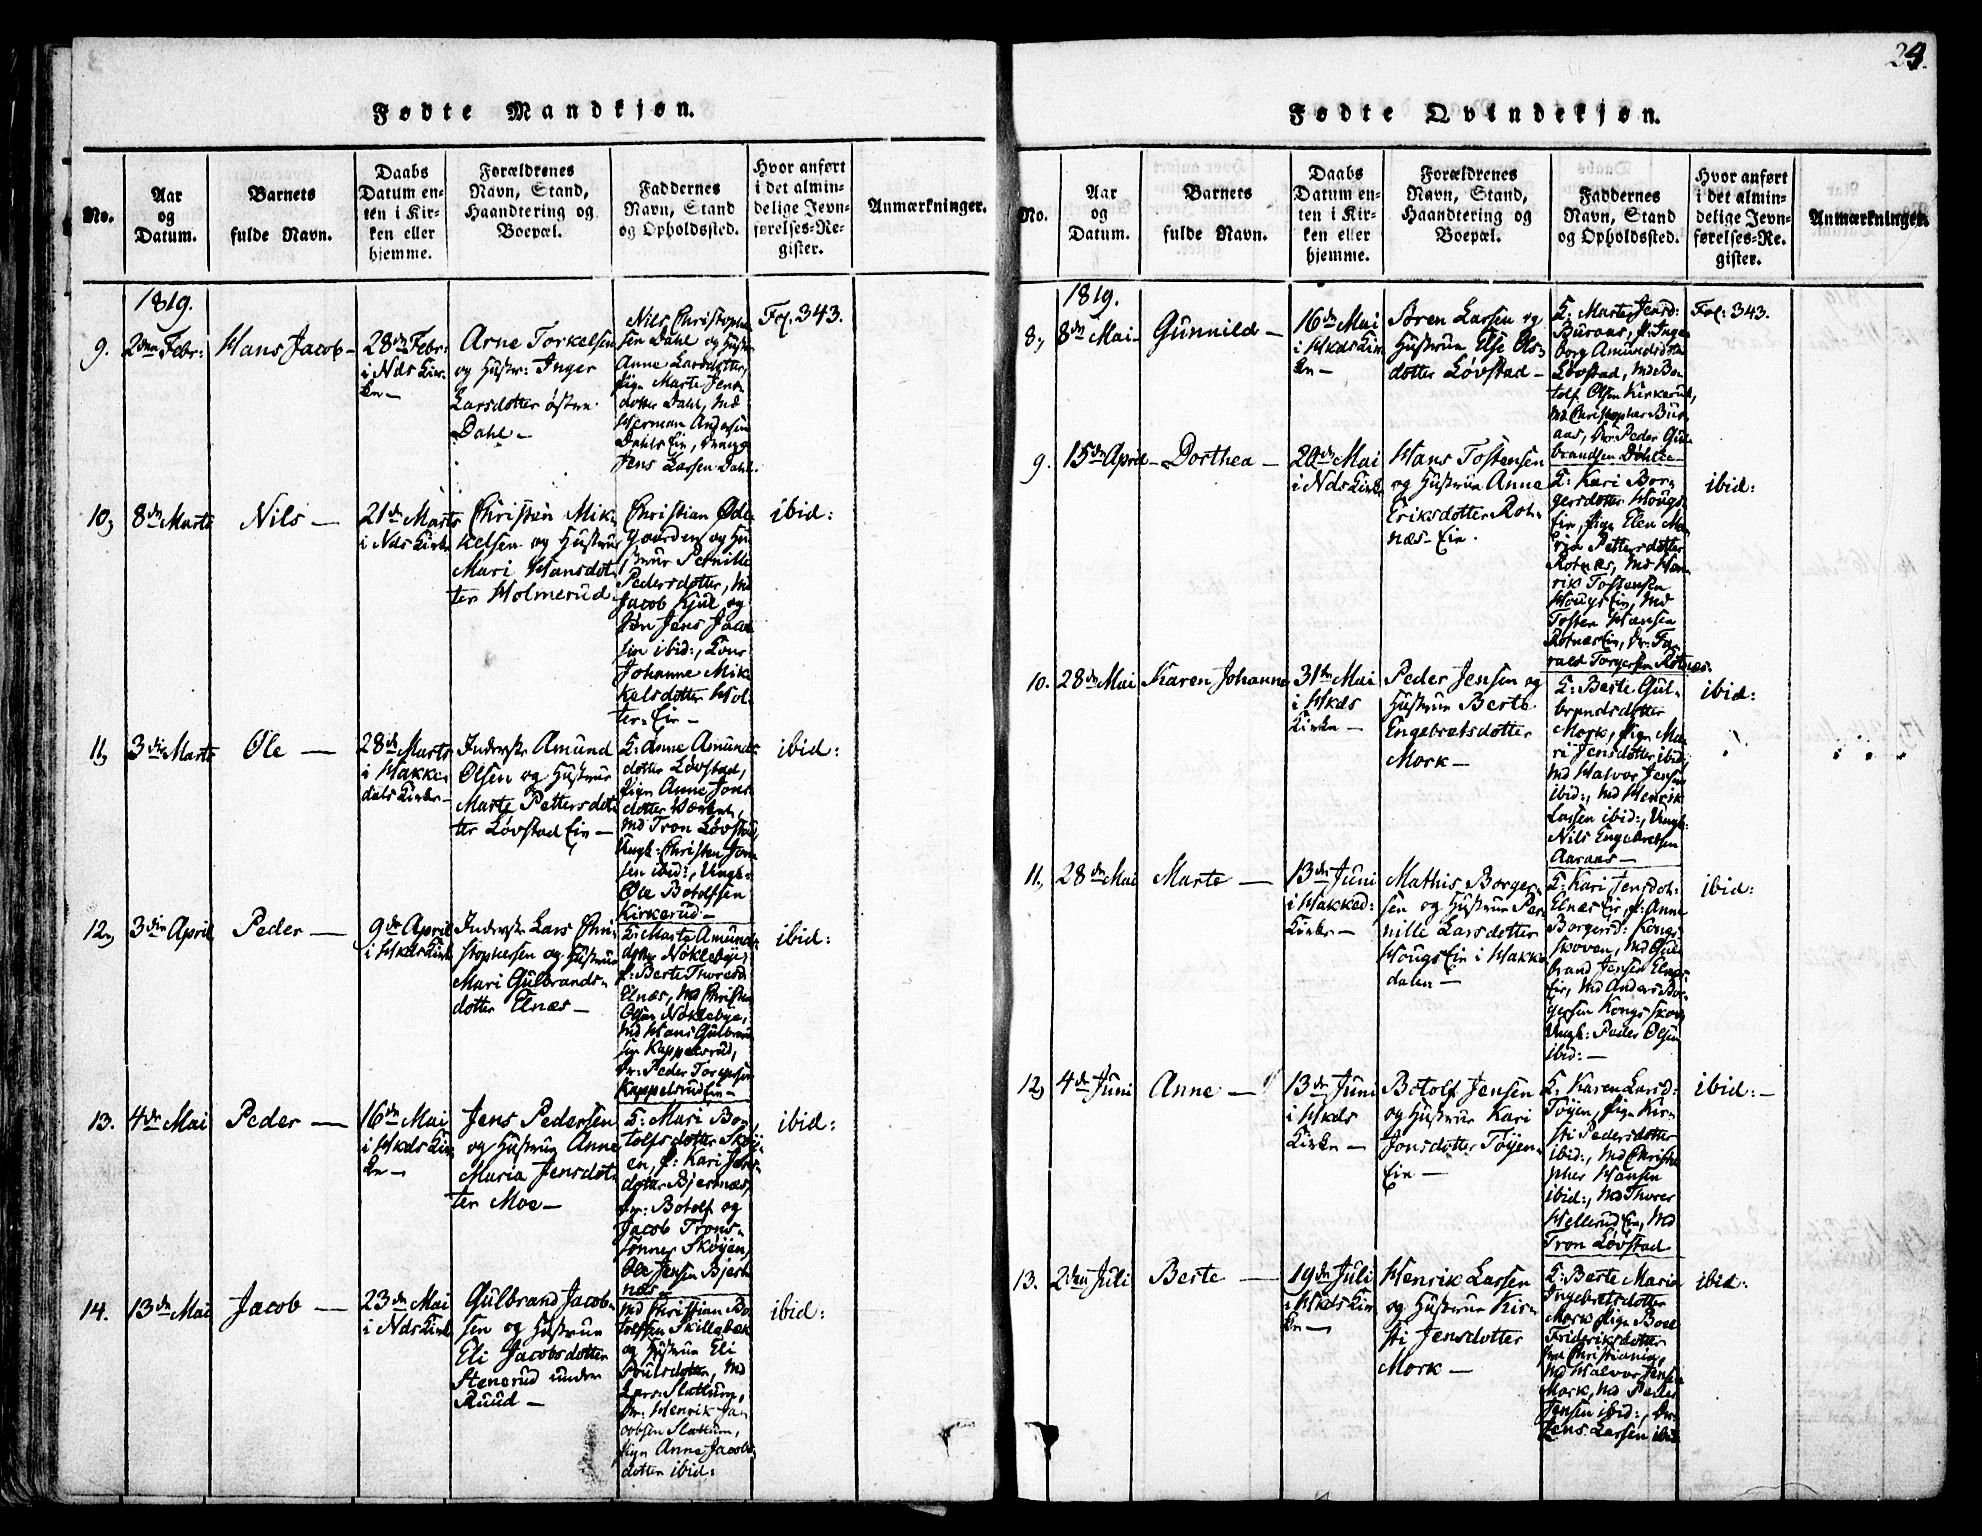 24.
Fødte Mandkjøn.
No.
Aar
og
Datum.
Barnets
fulde Navn.
Daabs
Datum en-
ten i Kir-
ken eller
hjemme.
Forældrenes
Navn, Stand,
Haandtering og
Boepæl.
Faddernes
Navn, Stand
og Opholdssted.
Hvor anført
i det almin-
delige Jevn-
førelses-Re-
gister.
Anmærkninger.
1819.
9.
2den Febr:
Hans Jacob –
28de Febr:
i Nds Kir-
ken –
Arne Torkelsen
og Hustr: Inger
Larsdotter østre
Dahl –
Nils Christophe
sen Dahl og Hustr
Anne Larsdotter,
Pige Marte Jens
dotter Dahl, Md
Herman Andersen
Dahls Eie,
Jens Larsen Dahl.
Fol. 343.
10,
8de Marts
Nils –
21de Marts
i Nds Kirke
Christen Mik-
kelsen og Hustrue
Mari Hansdot-
ter Holmerud
Christian Øde
gaarden og Hu
strue Pernille
Pedersdotter, Md
Jacob Kjul og
Søn Jens Jacob
sen ibid:, Kone
Johanne Mik
kelsdotter Hol-
ter-Eie –
ibid:
11,
3die Marts
Ole –
28de Marts
i Hakke
dals Kirke –
Inderste Amund
Olsen og Hustrue
Marte Pettersdot
ter Løvstad Eie –
K: Anne Amunds
dotter Løvstad,
Pige Anne Jons
dotter
Md Tron Løvstad,
Ungk: Christen Jon
sen ibid:, Ungk:
Ole Botolfsen
Kirkerud –
ibid:
12,
3die April
Peder –
9de April
i Hkds Kirke
Inderste Lars Chri
stophersen og Hustrue
Mari Gulbrands-
dotter Elnæs –
K: Marte Amunds
dotter Nøklebye,
P: Berte Thoresd
Elnæs, Md Christen
Olsen Nøklebye,
Md Hans Gulbrand
sen Kappelsrud,
Dr: Peder Torgersen
Kappelsrud Eie –
ibid:
13.
4de Mai
Peder –
16de Mai
i Hkds Kir
ke –
Jens Pedersen
og Hustrue Anne
Maria Jensdot-
ter Moe –
K: Mari Bo-
tolfsdotter Skøy-
en, P: Kari Jens
dotter Bjertnæs,
Dr: Botolf og
Jacob Trons-
sønner Skøyen,
Ole Jensen Bjert
næs –
ibid:
14.
13de Mai
Jacob –
23de Mai
i Nds Kirke
Gulbrand Jacob-
sen og Hustrue
Eli Jacobsdotter
Stenerud under
Ruud –
Md Christian Bo
tolfsen Skillebæk
og Hustrue Eli
Poulsdotter, Md
Lars Slattum,
Dr: Henrik Ja
cobsen Slattum,
Pige Anne Jacobs
dotter ibid:
ibid:
Fødte Qvindekjøn.
No.
Aar
og
Datum.
Barnets
fulde Navn.
Daabs
Datum en-
ten i Kir-
ken eller
hjemme.
Forældrenes
Navn, Stand,
Haandtering og
Boepæl.
Faddernes
Navn, Stand
og Opholdssted.
Hvor anført
i det almin-
delige Jevn-
førelses-Re-
gister.
Anmærkninger.
1819.
8,
8de Mai –
Gunnild –
16de Mai
i Hkds Kir
ke –
Søren Larsen og
Hustrue Else Ols-
dotter Løvstad –
K: Marte Jensd:
Buraas, P: Inge
borg Amundsdotter
Løvstad, Md Bo-
tolf Olsen Kirkerud,
Md Christopher Bur
aas, Dr: Peder Gul
brandsen Døhlie –
Fol: 343.
9.
15de April –
Dorthea –
20de Mai
i Nds Kirke
Hans Tostensen
og Hustrue Anne
Eriksdotter Rot-
næs-Eie.
K: Kari Bor-
gersdotter Hougs
Eie, Pige Elen Ma
ria Pettersdotter
Rotnæs, Md Hen
rik Tostensen
Hougs Eie, Md
Tosten Hansen
Rotnæs Eie, Dr:
Torgersen Rotnæs.
ibid:
10.
28de Mai
Karen Johanne
31te Mai
i Hkds
Kirke –
Peder Jensen og
Hustrue Berte
Engebretsdotter
Mork –
K: Berte Gul-
brandsdotter
Mork, Pige Ma
ri Jensdotter ibid:
Md Halvor Jensen
ibid:, Md Henrik
Larsen ibid:, Ungk:
Nils Engebretsen
Aaraas –
ibid:
11,
28de Mai
Marte –
13de Juni
i Hakked:
Kirke –
Mathis Borger-
sen og Hustrue Per
nille Larsdotter
Hougs Eie i Hakke
dalen –
K: Kari Jensdot:
Elnæs Eie, P: Anne
Borgersd: Kongs
skoven, Md Gul
brand Jensen Elnæs
Eie, Md Anders Bor
gersen Kongsskov
Ungk: Peder Olsen
ibid: –
ibid:
12,
4de Juni
Anne –
13de Juni
i Hkds
Kirke –
Botolf Jensen
og Hustrue Kari
Jonsdotter Tøyen-
Eie –
K: Karen Larsd:
Tøyen, Pige Kir-
sti Pedersdotter
ibid:, Md Christo
pher Hansen
ibid:, Md Thorer
Hellerud Eie, Md
Tron Løvstad
ibid: –
13.
2den Juli
Berte –
19de Juli
i Hkds Kir
ke –
Henrik Larsen
og Hustrue Kir-
sti Jensdotter
Mork –
K: Berte Maria
Ingebretsdotter
Mork, Pige Boel
Frideriksdotter
fra Christiania,
Md Halvor Jensen
Mork, Md Peder
Jensen ibid:, Dr:
Jens Larsen ibid
ibid: